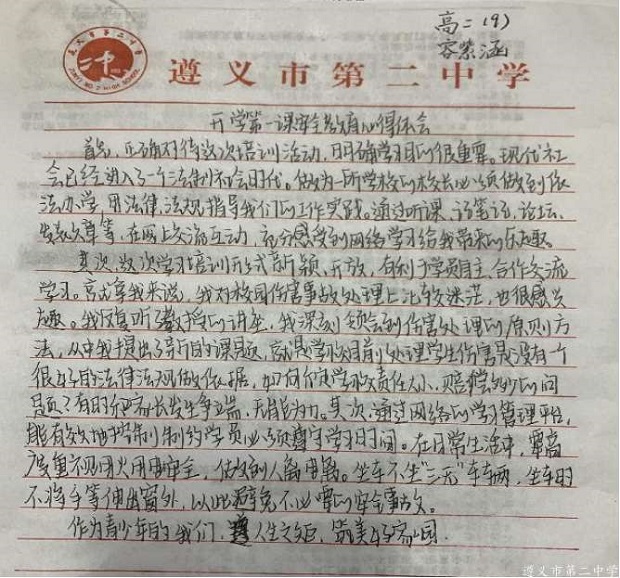 高二(9)
容紫涵
遵义市第二中学
开学第一课安全教育心得体会
首先,正确对待这次培训活动,明确学习目的很重要。现代社
会已经进入了一个法制社会时代。做为一所学校的校长必须做到依
法办学,用法律,法规指导我们的工作实践。通过听课、记笔记,论坛、
发表文章等,在网上交流互动,充分感受到网络学习给我带来的乐趣。
其次,这次学习培训形式新颖,开放,有利于学员自主,合作交流
学习。言或拿我来说,我对校园伤害事故处理上比较迷茫,也很感兴
趣。我反复听了教授的讲座,我深刻领会到伤害处理的原则方
法,从中我提出了新的课题,就是学校目前处理学生伤害是没有一个
很好的法律法规做依据,如何确定学校责任大小,赔偿多少的问
题?有时和家长发生争端,无能为力。其次,通过网络的学习管理平台,
能有效地控制制约学员必须遵守学习时间。在日常生活中,要高
度重视用火用电安全,做到人离电断。坐车不坐"三无"车车辆,坐车时
不将手等伸出窗外,以此避免不必要的安全事故。
作为青少年的我们,遵人生之矩,筑美好家园.
遵义市第二中学